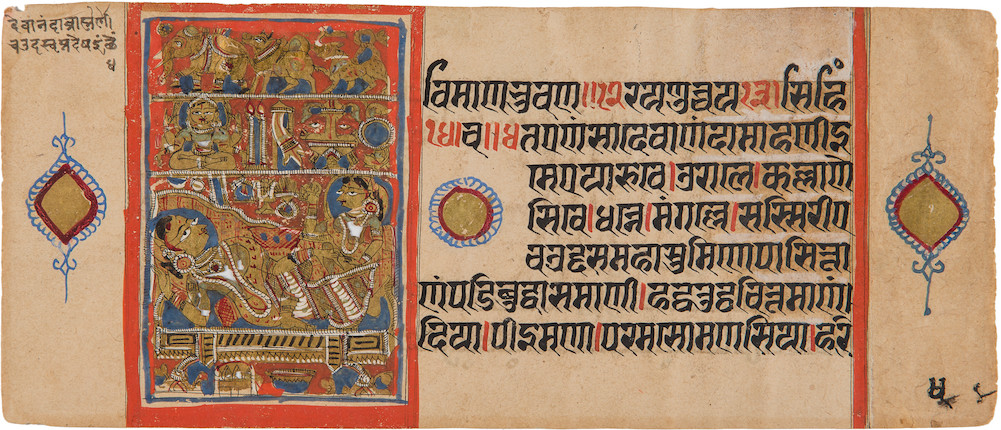 देवानंदाब्राह्मणी
चउदस्वप्नदेषइछै
४
विमाणभुवण।।१२ रयणुच्चय१३।सिहिं
१४।च।।४तएणंसादेवाणंदामाहणीइ
मेएयारूवे।उराले।कल्लाणे
सिवे।धन्ने।मंगल्ले।सस्सिरीए
चउद्दसमहासुमिणेपासित्ता
णंपडिबुद्धासमाणी।हट्ठतुट्ठचित्तमाणं
दिया।पीइमणा।परमसोमणसिया।हरि